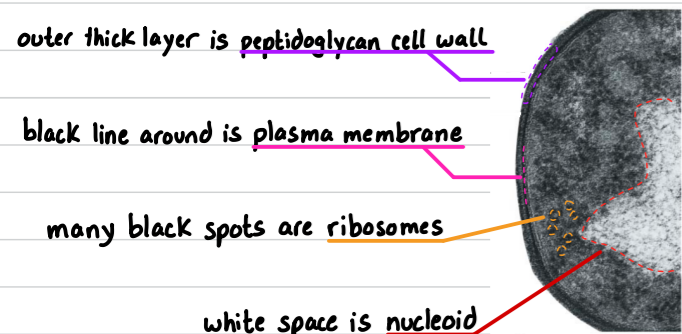 outer thick layer is peptidoglycan cell wall
black line around is plasma membrane
many black spots are ribosomes
white space is nucleoid